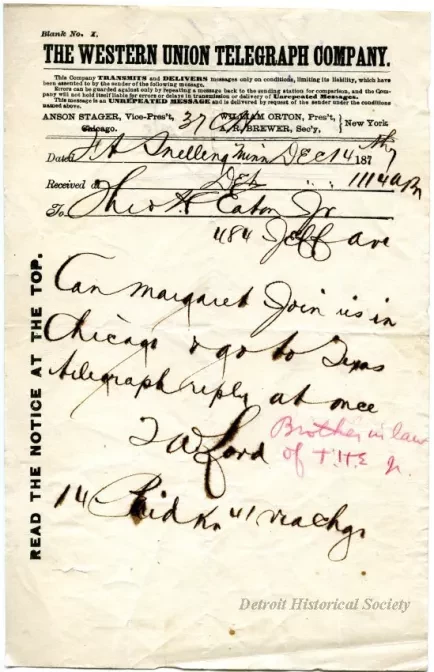 Blank No. 1.
THE WESTERN UNION TELEGRAPH COMPANY.
This Company TRANSMITS and DELIVERS messages only on conditions, limiting its liability, which have
been assented to by the sender of the following message.
Errors can be guarded against only by repeating a message back to the sending station for comparison, and the Com-
pany will not hold itself liable for errors or delays in transmission or delivery of Unrepeated Messages.
This message is an UNREPEATED MESSAGE and is delivered by request of the sender under the conditions
named above.
ANSON STAGER, Vice-Pres't, WILLIAM ORTON, Pres't, } New York
Chicago. A. R. BREWER, Sec'y,
37
Dated Ft Snelling Minn Dec 14 187
Received at Det 1114am
To Theo H Eaton Jr
484 Jeff ave
Can Margaret Join us in
Chicago & go to Texas
telegraph reply at once
Ford
Brother in law
of T.H.E Jr.
14 Paid
READ THE NOTICE AT THE TOP.
Detroit Historical Society